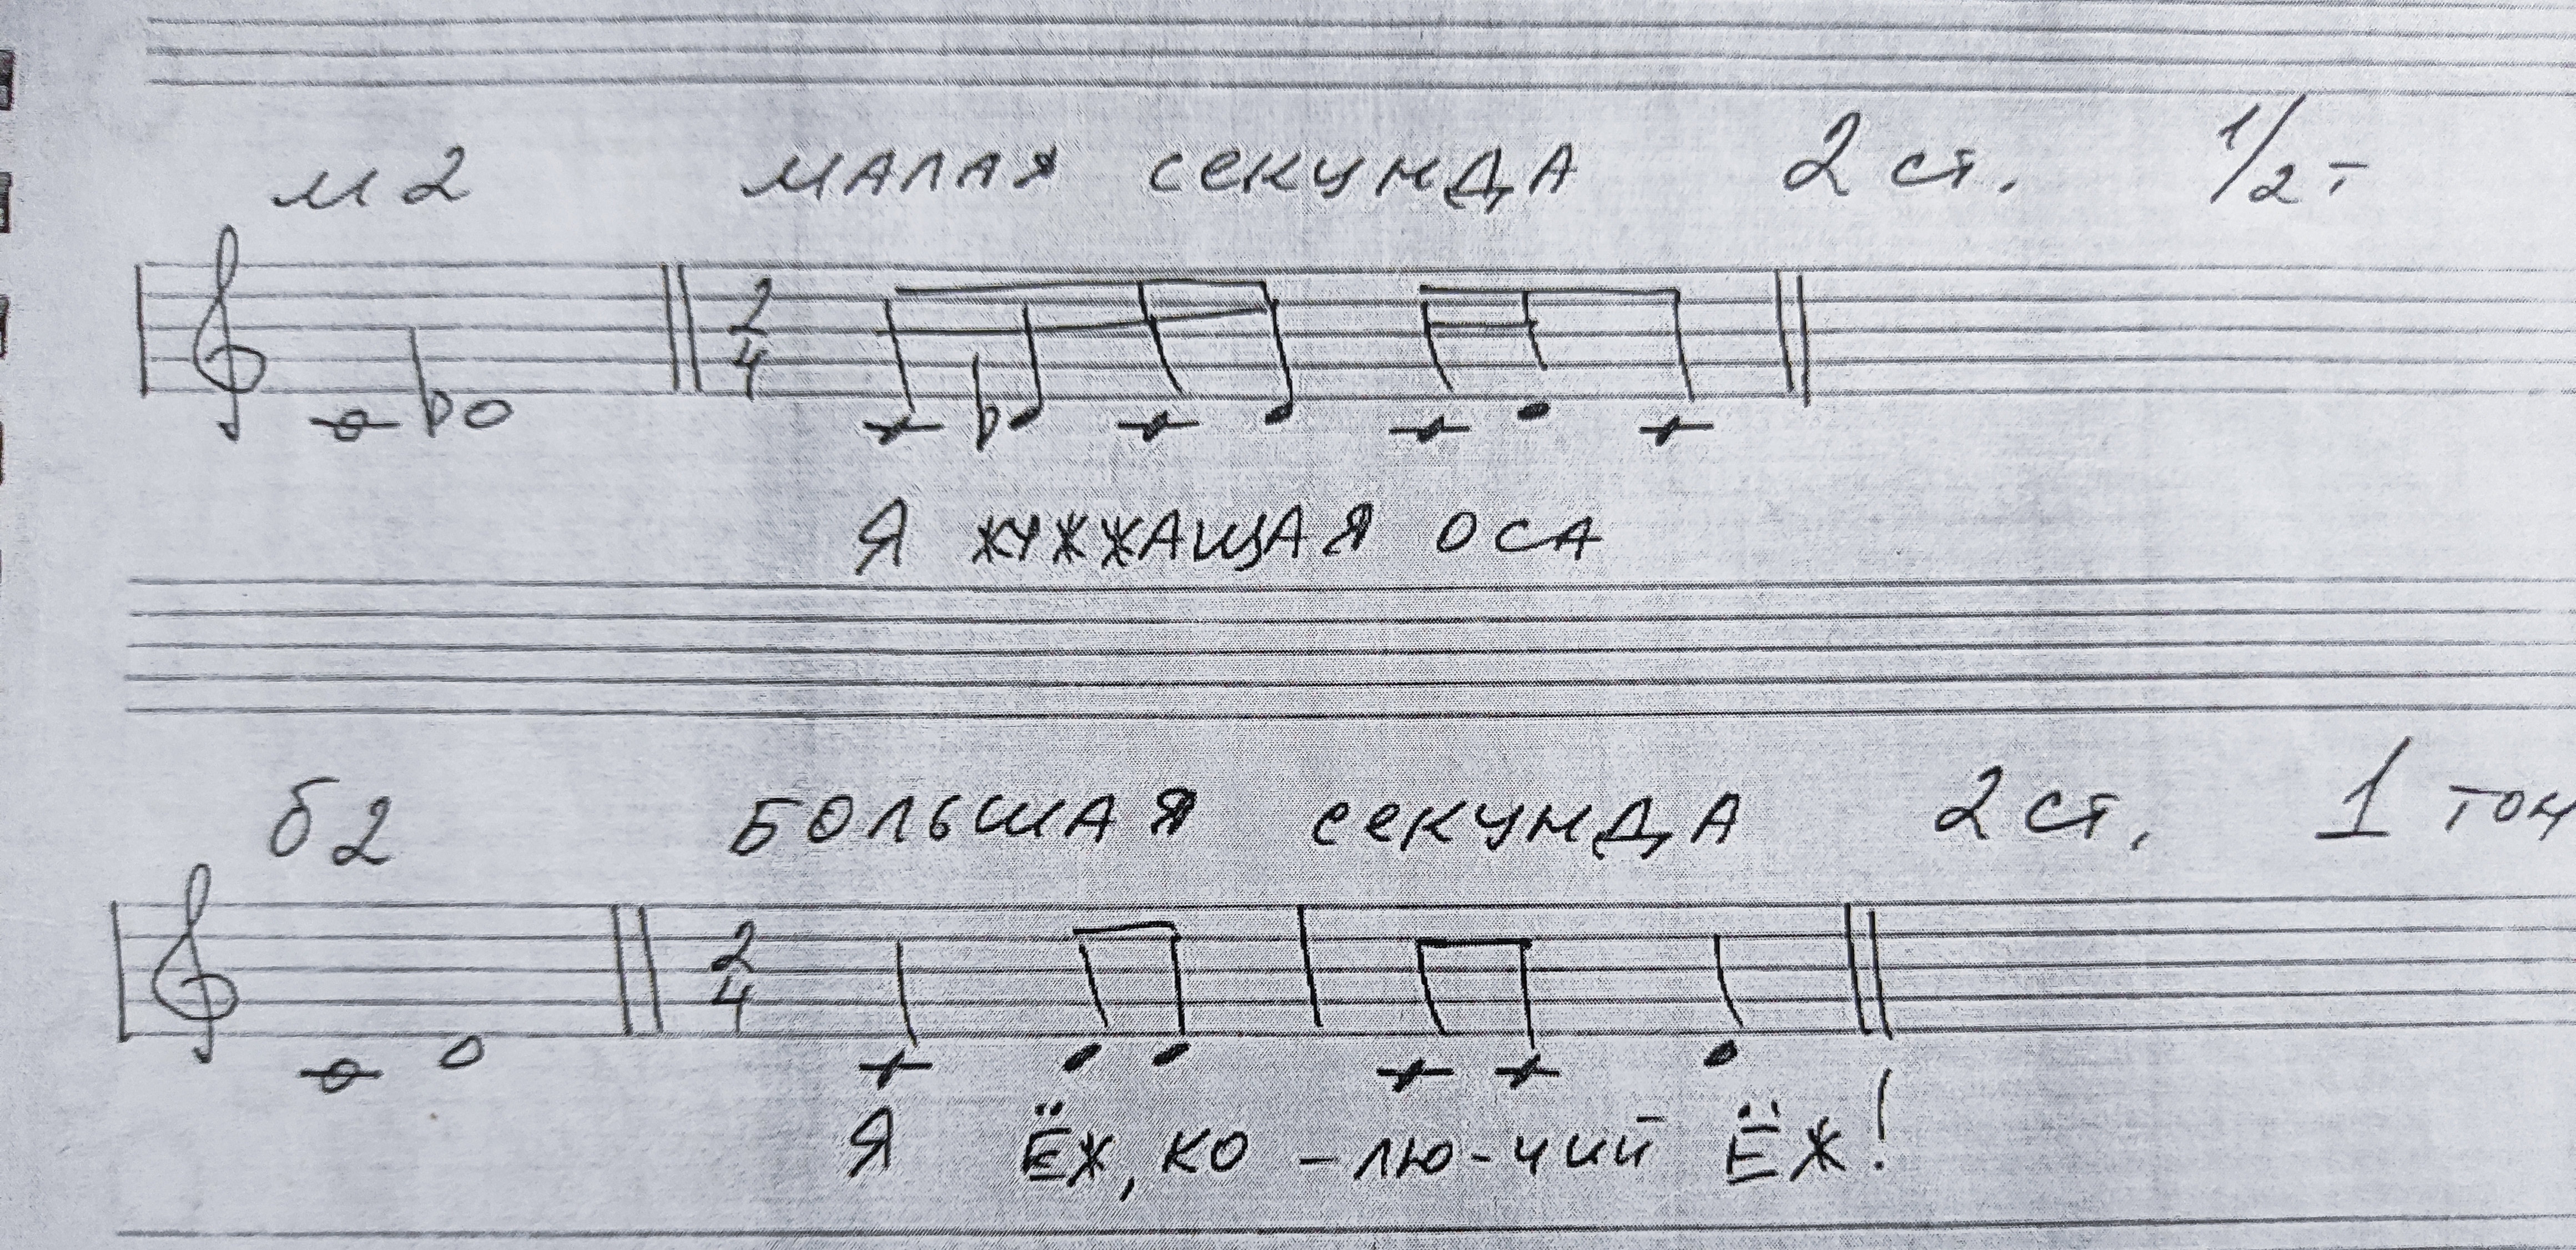 м2 МАЛАЯ СЕКУНДА 2 ст. 1/2 т
2
4
Я ЖУЖЖАЩАЯ ОСА
б2 БОЛЬШАЯ СЕКУНДА 2 ст. 1 тон
2
4
Я ЁЖ, КО - ЛЮ - ЧИЙ ЁЖ!